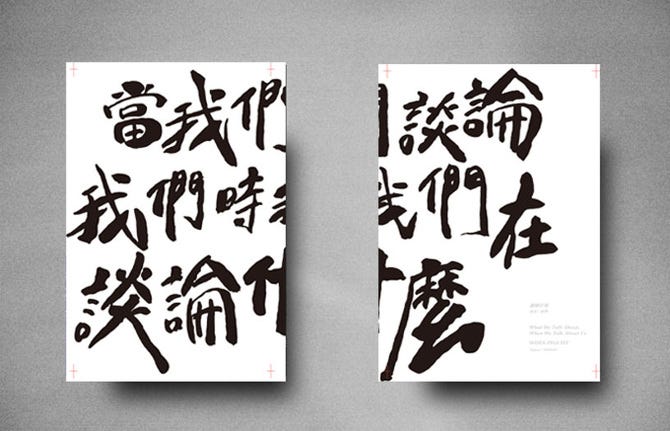 當我們談論
我們時我們在
談論什麼
What We Talk About,
When We Talk About Us